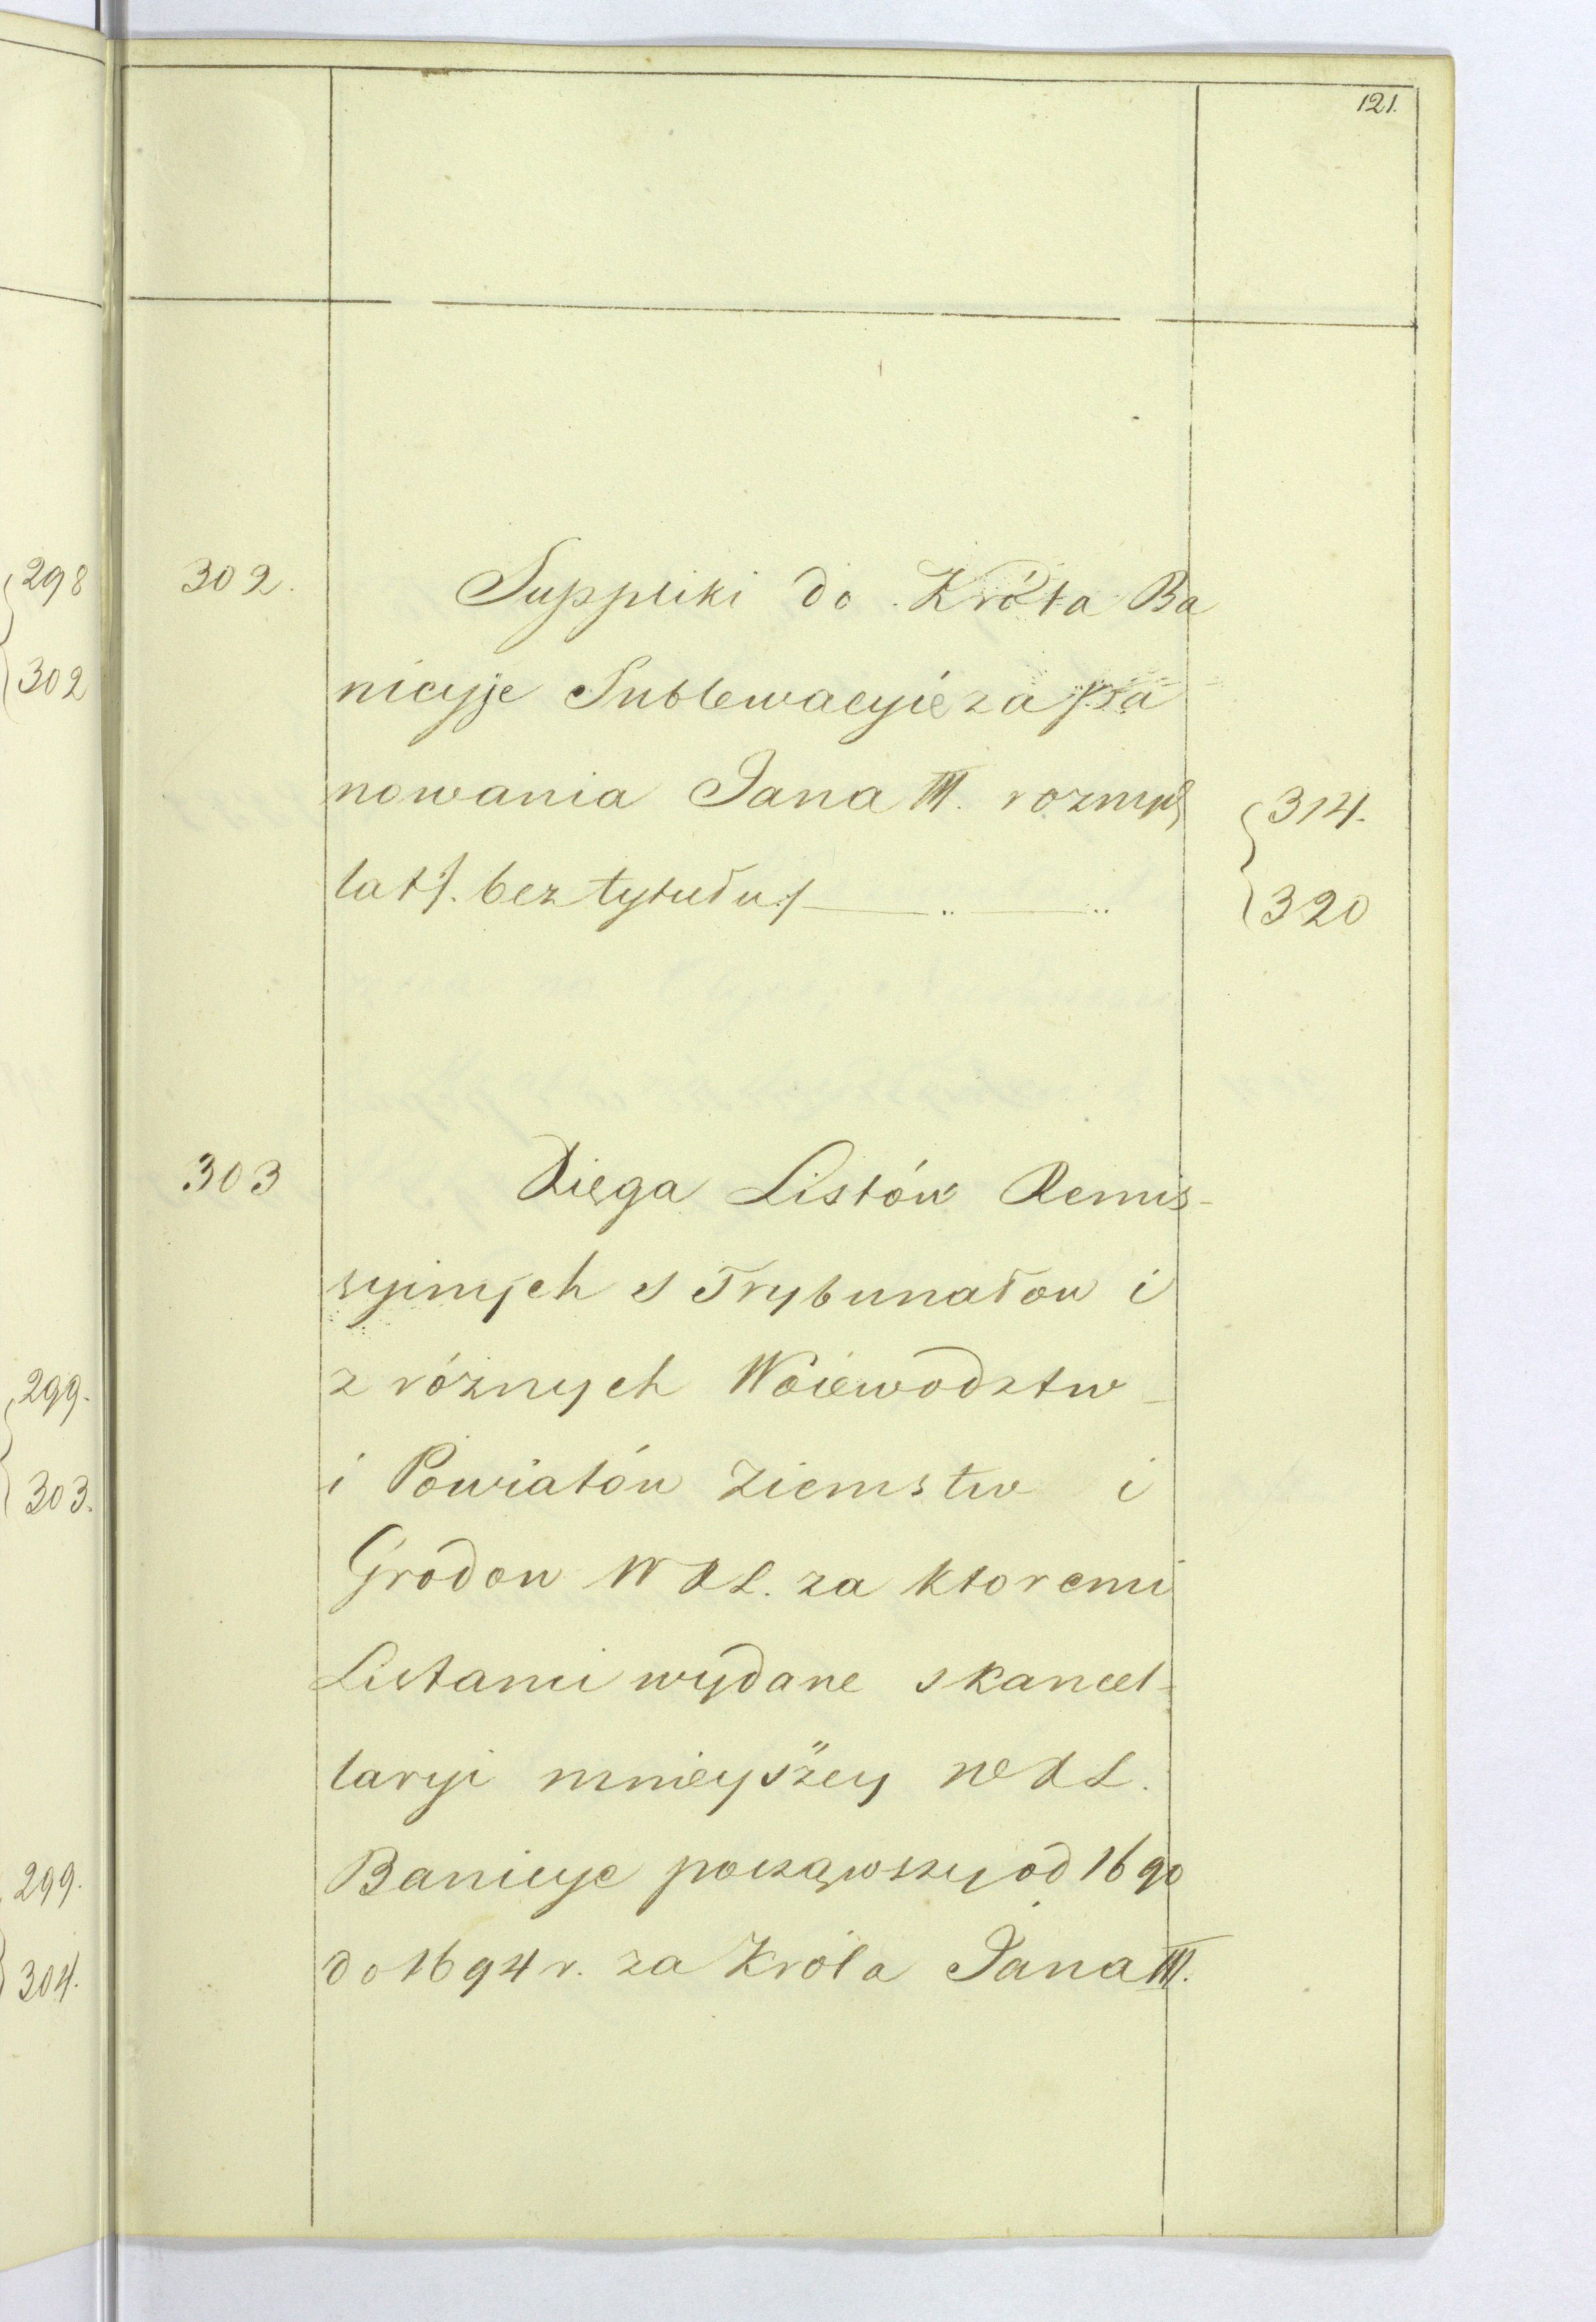 121.
298
302
299.
303.
299.
304.
302. Suppliki do Króla Ba
nicyje Sublewacyie za pa
nowania Jana III. roznych
lat /. bez tytułu ./ 314. 320
303 Xięga Listów Remis-
syinych s Trybunałow i
z róznych Woiewodztw
i Powiatów Ziemstw i
Grodow W X L. za ktoremi
Listami wydane s kancel-
laryi mnieyszey W X L.
Banicye począwszy od 1690
do 1694 r. za Króla Jana III.